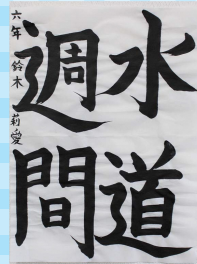 水道
週間
六年 鈴木 莉愛